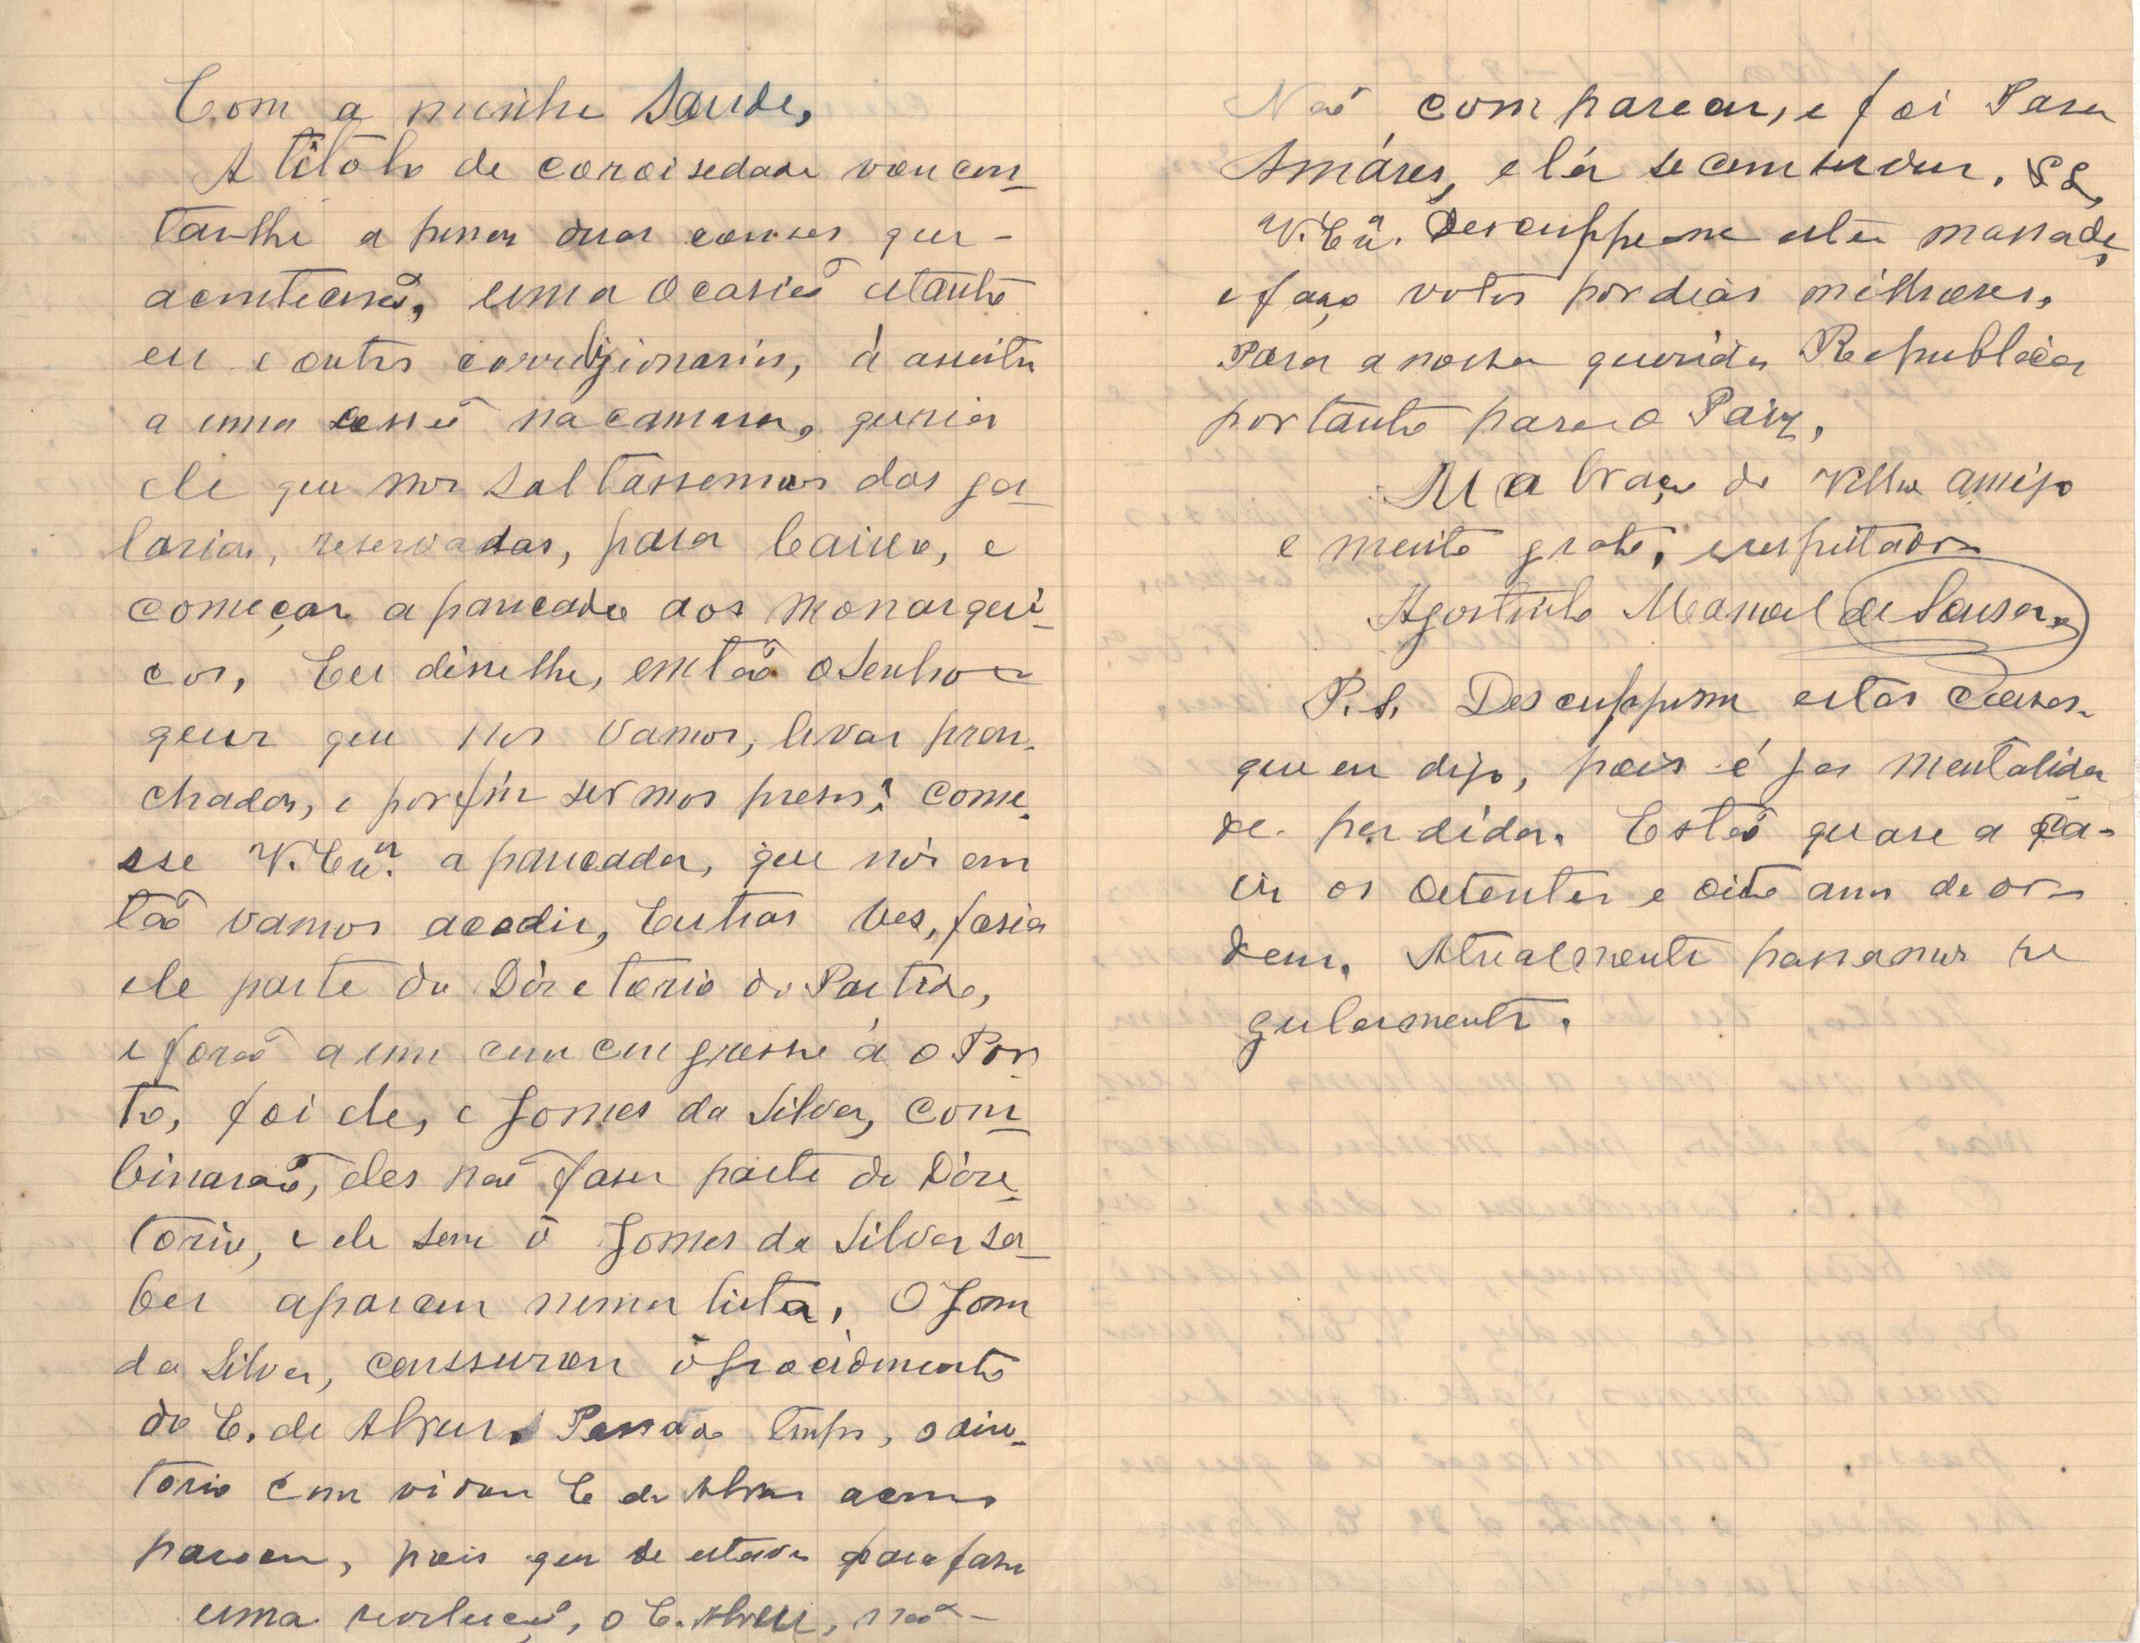 Com a minha saude,
A titolo de coroisedade vou con_
tar-lhe a penas duas cousas que-
acontecerão, uma ocasião estanto
eu e outros correligionarios, á assistir
a uma sessão na camara, queria
ele que nos saltassemos das ga_
larias, reservadas, para baixo, e
começar a pancada aos monarqui_
cos, Eu disse lhe, então o senhor
quer que nos vamos, levar pran-
chadas, e por fim sermos presos? Come_
sse V. Exª. a pancada, que nós em
tão vamos acodir, Outras ves, fasia
ele parte do Diretorio do Partido,
e forão a um congresso á o Por
to, foi ele, e Gomes da Silva, com_
binarão, eles não faser parte do Dire_
torio, e ele sem o Gomes da Silva sa_
ber apareceu numa lista, O Gomes
da Silva, censsurou o procidimento
do E. de Abreu. Passado tempo, o dire_
torio convidou E de Abreu a com
parecer, pois que se estava para faser
uma revolução, o E. Abreu, não-
Não compareceu, e foi Para
Amáres, e lá se conservou.
V. Exª. Desculppe-me esta massada,
e faço votos por dias milhores,
Para a nossa querida Republica
portanto para o Paiz,
Um abraço do Velho amigo
e muito grato, e respeitador
Agostinho Manoel de Sousa
P.S. Desculppem estas cousas-
que eu digo, pois é ja mentalida
de perdida. Estão quase a ca-
ir os oitenta e oito anos de or-
dem. Atualmente passamos re
gularmente.